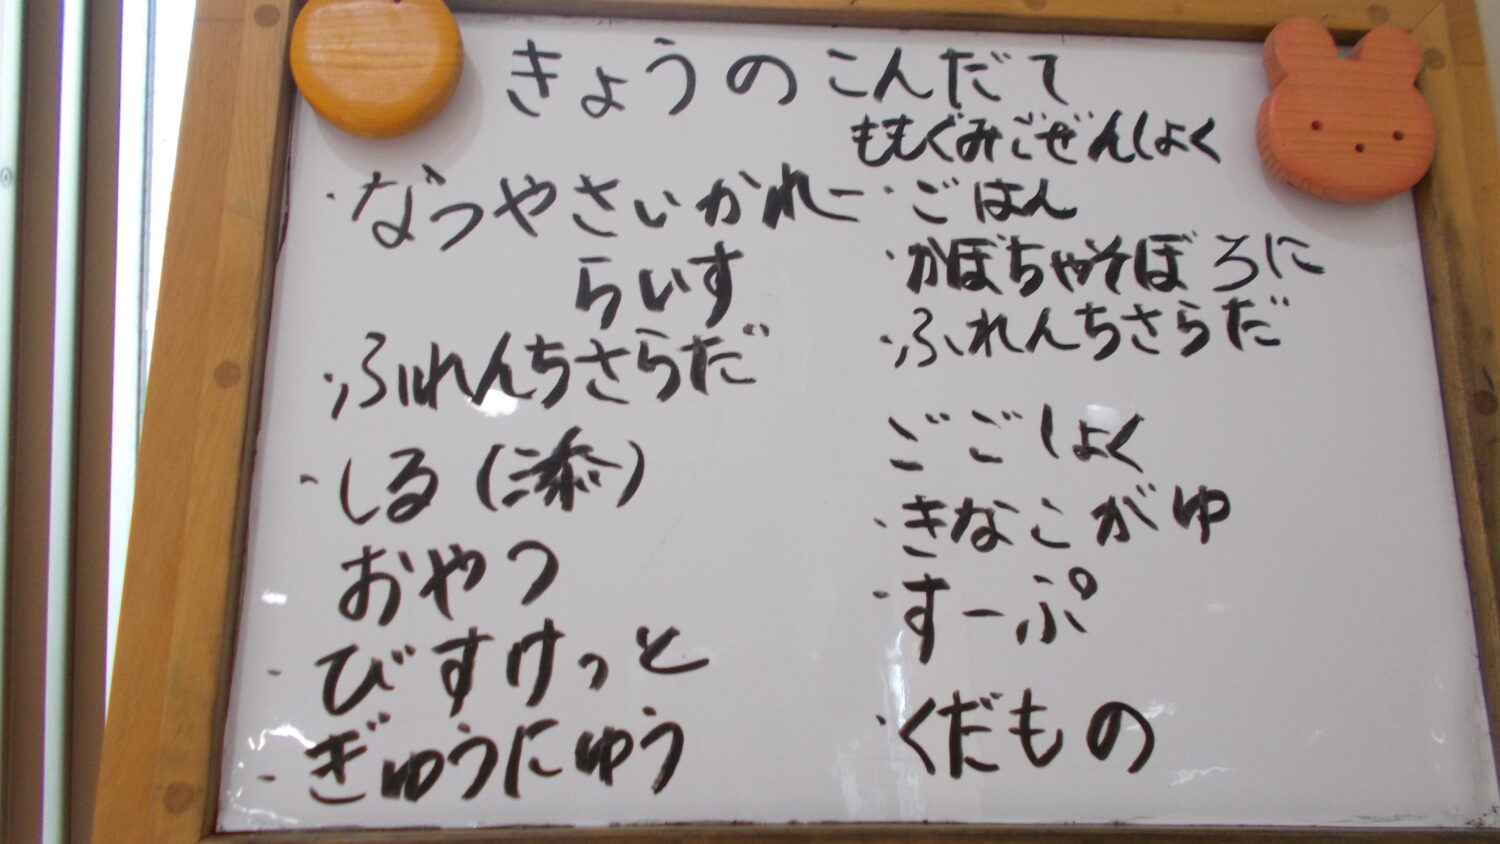 きょうのこんだて
・なつやさいかれー
らいす
・ふれんちさらだ
・しる(添)
おやつ
・びすけっと
・ぎゅうにゅう
ももぐみごぜんしょく
・ごはん
・かぼちゃそぼろに
・ふれんちさらだ
ごごしょく
・きなこがゆ
・すーぷ
・くだもの